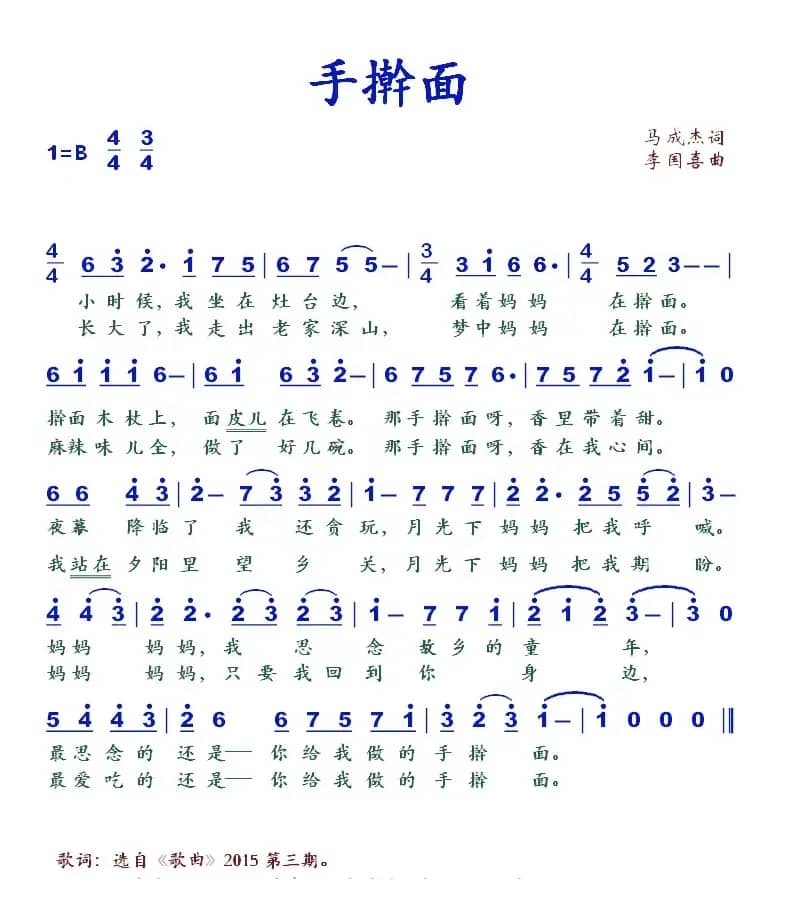 手擀面
1=B 4/4 3/4
马成杰词
李国喜曲
4/4 6 3̇ 2̇· 1̇ 7 5 | 6 7 5 5 — | 3/4 3 1̇ 6 6· | 4/4 5 2 3 — — |
小时候,我坐在灶台边, 看着妈妈 在擀面。
长大了,我走出老家深山, 梦中妈妈 在擀面。
6 1̇ 1̇ 1̇ 6 — | 6 1̇ 6 3̇ 2̇ — | 6 7 5 7 6· | 7 5 7 2̇ 1̇ — | 1̇ 0
擀面木杖上, 面皮儿在飞卷。 那手擀面呀,香里带着甜。
麻辣味儿全, 做了 好几碗。 那手擀面呀,香在我心间。
6 6 4̇ 3̇ | 2̇ — 7 3̇ 3̇ 2̇ | 1̇ — 7 7 7 | 2̇ 2̇· 2̇ 5 5 2̇ | 3̇ —
夜幕 降临了 我 还贪玩,月光下妈妈把我呼 喊。
我站在夕阳里 望 乡 关,月光下妈妈把我期 盼。
4̇ 4̇ 3̇ | 2̇ 2̇· 2̇ 3̇ 2̇ 3̇ | 1̇ — 7 7 1̇ | 2̇ 1̇ 2̇ 3̇ — | 3̇ 0
妈妈 妈妈,我 思 念 故乡的童 年,
妈妈 妈妈,只要我回到你 身 边,
5 4̇ 4̇ 3̇ | 2̇ 6 6 7 5 7 1̇ | 3̇ 2̇ 3̇ 1̇ — | 1̇ 0 0 0 ‖
最思念的 还是——你给我做的手擀 面。
最爱吃的 还是——你给我做的手擀 面。
歌词：选自《歌曲》2015第三期。